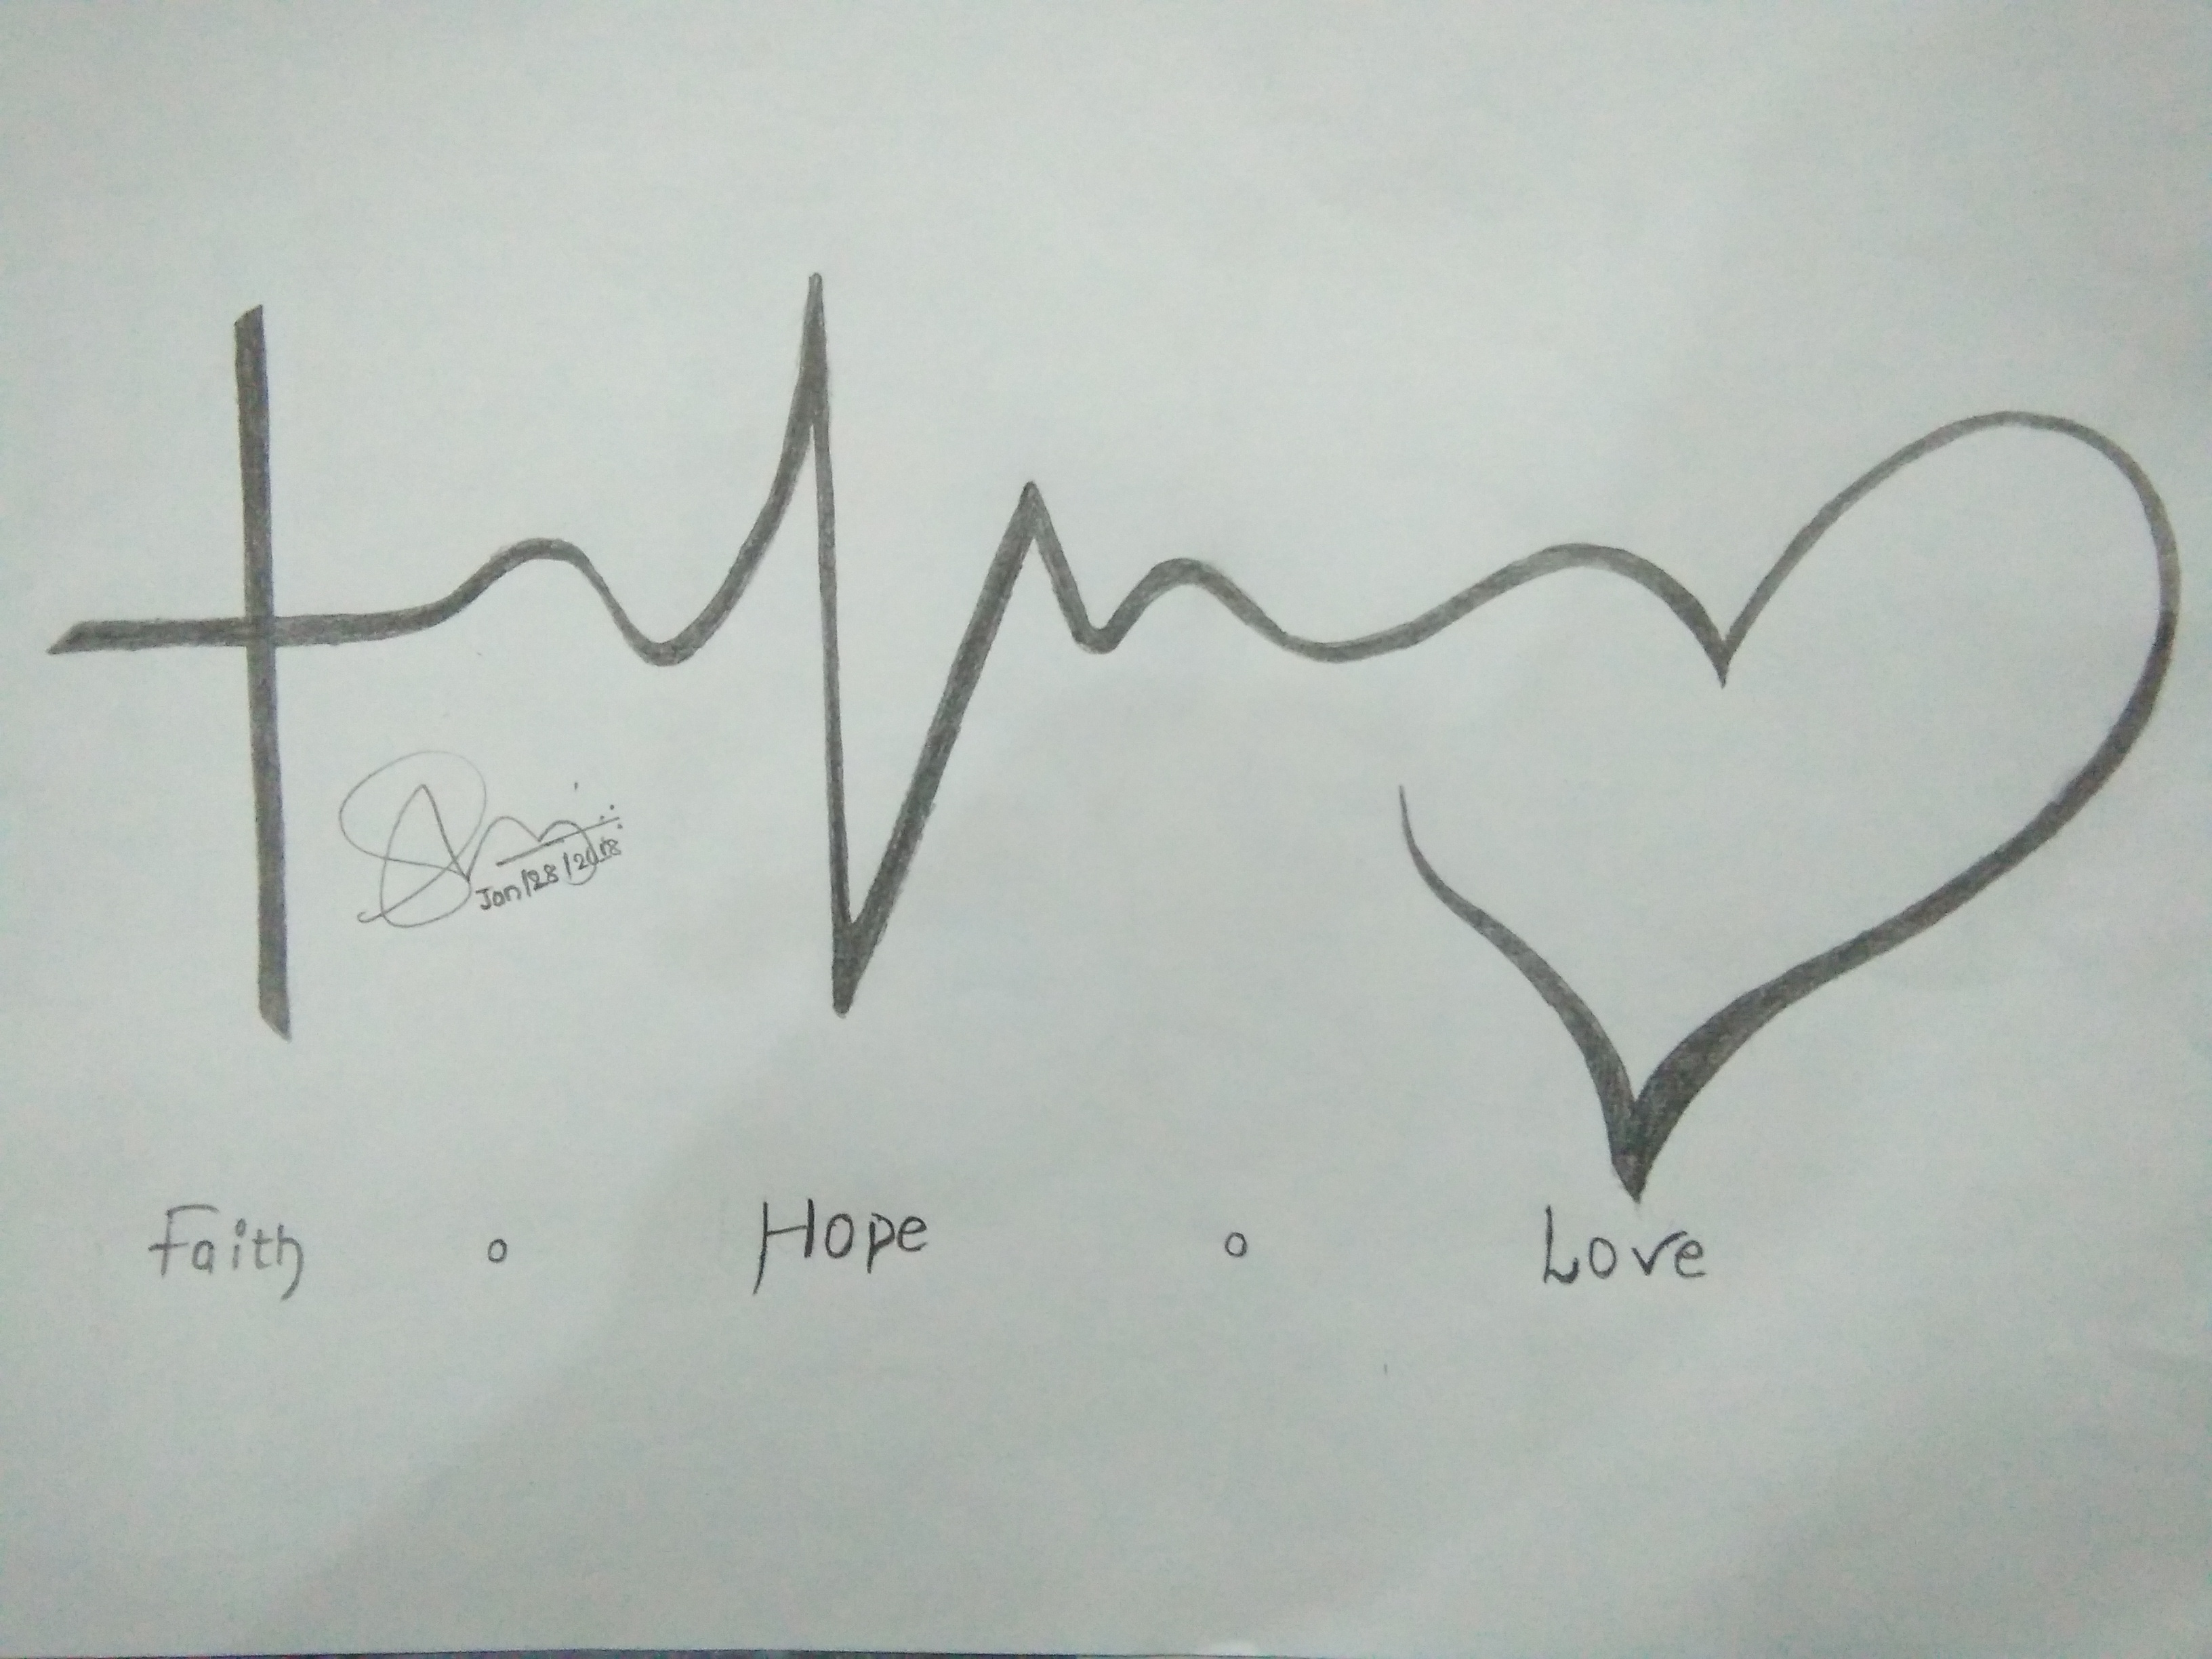 Jan/28/2018
Faith o Hope o Love